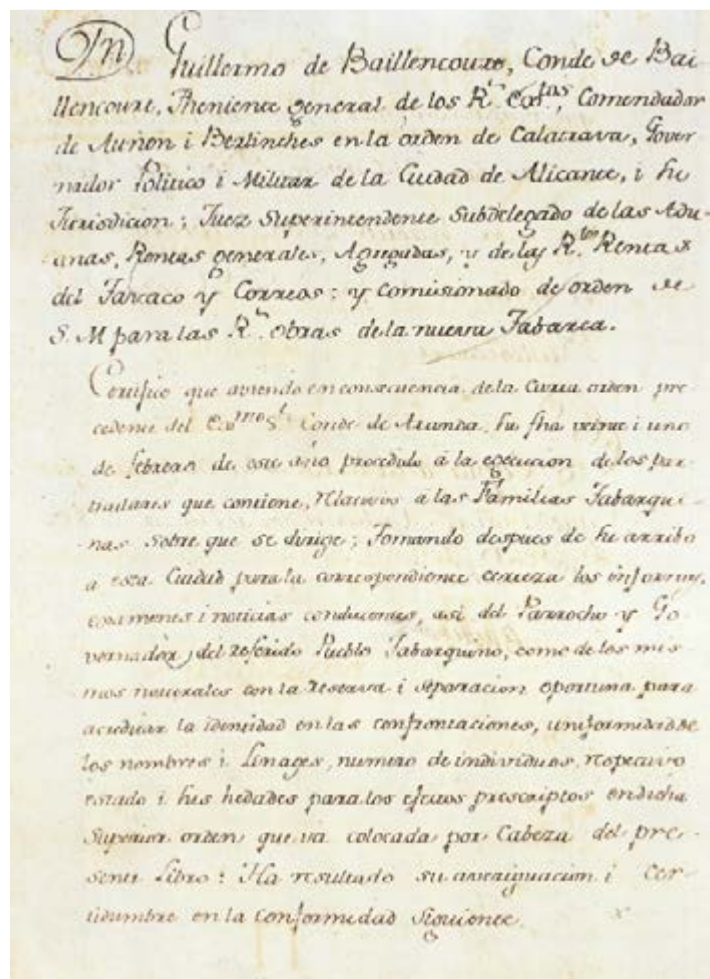 Dn Guillermo de Baillencourt, Conde de Bai-
llencourt, Theniente general de los Rs. Extos, Comendador
de Auñon i Berlinches en la órden de Calatrava, Gover-
nador Politico i Militar de la Ciudad de Alicante, i su
Jurisdicion; Juez Superintendente Subdelegado de las Adu-
anas, Rentas generales, Agregadas, y de las Rs Rentas
del Tavaco y Correos: y comisionado de orden de
S. M para las Rs obras de la nueva Tabarca.
Certifico que aviendo en consecuencia de la Carta orden pre-
cedente del Exmo Sr Conde de Aranda, su fha veinte i uno
de febrero de este año procedido à la egecucion de los par-
ticulares que contiene, relativos à las Familias Tabarqui-
nas sobre que se dirige; Tomando despues de su arribo
a esta Ciudad para la correspondiente certeza los informes,
examenes i noticias conducentes, asi del Parrocho y Go-
vernador, del referido Pueblo Tabarquino, como de los mis-
mos naturales con la reserva i separacion oportuna para
acreditar la identidad en las confrontaciones, uniformidad de
los nombres i Linages, numero de individuos, respectivo
estado i sus hedades para los efectos prescriptos en dicha
Superior orden que va colocada por Cabeza del pre-
sente Libro: Ha resultado su averiguacion i cer-
tidumbre en la Conformidad Siguiente.